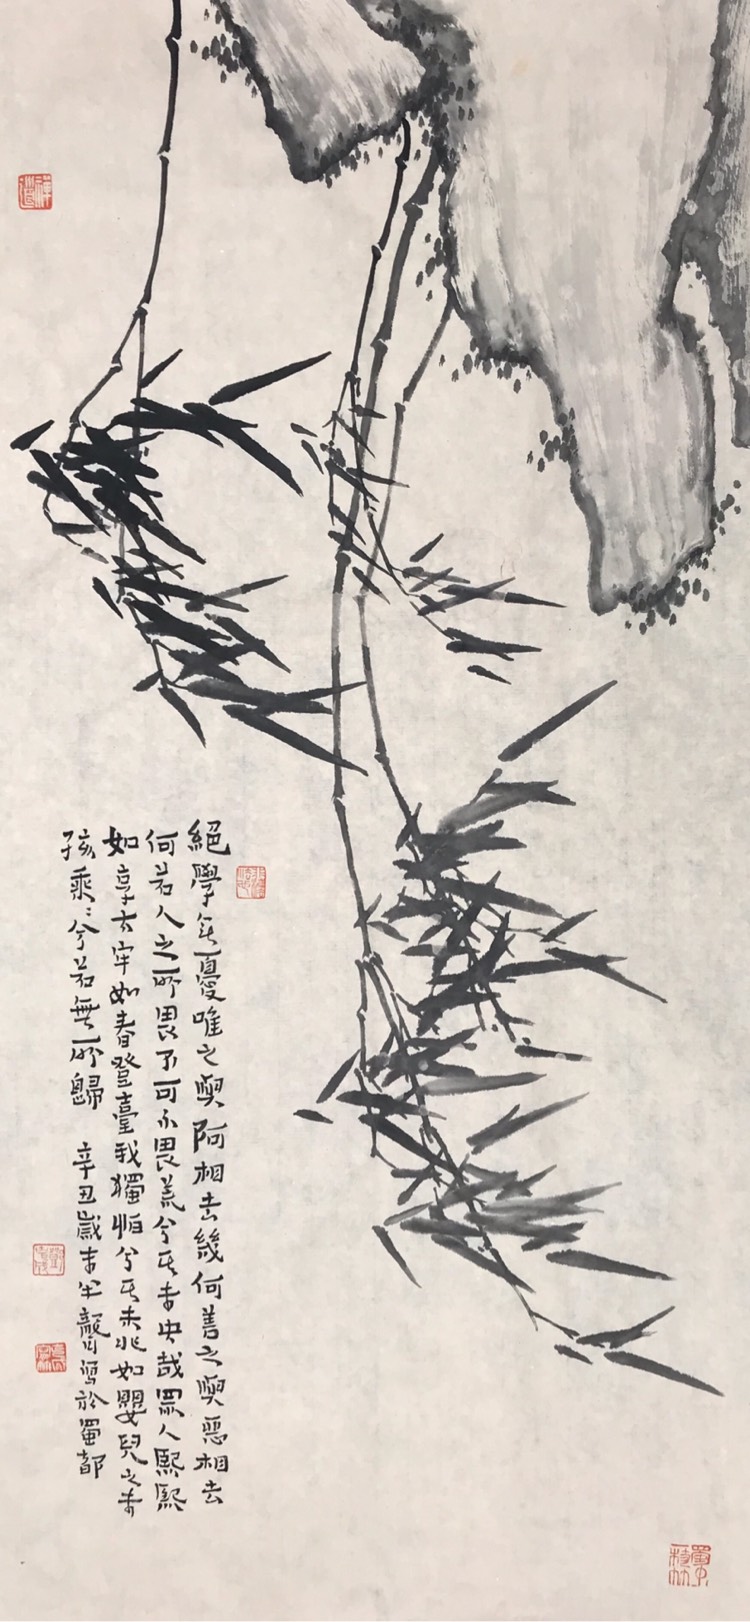 絕學无憂唯之與阿相去幾何善之與惡相去
何若人之所畏不可不畏荒兮其未央哉眾人熙熙
如享太牢如春登臺我獨怕兮其未兆如嬰兒之未
孩乘〻兮若無所歸 辛丑歲末半聾寫於蜀都